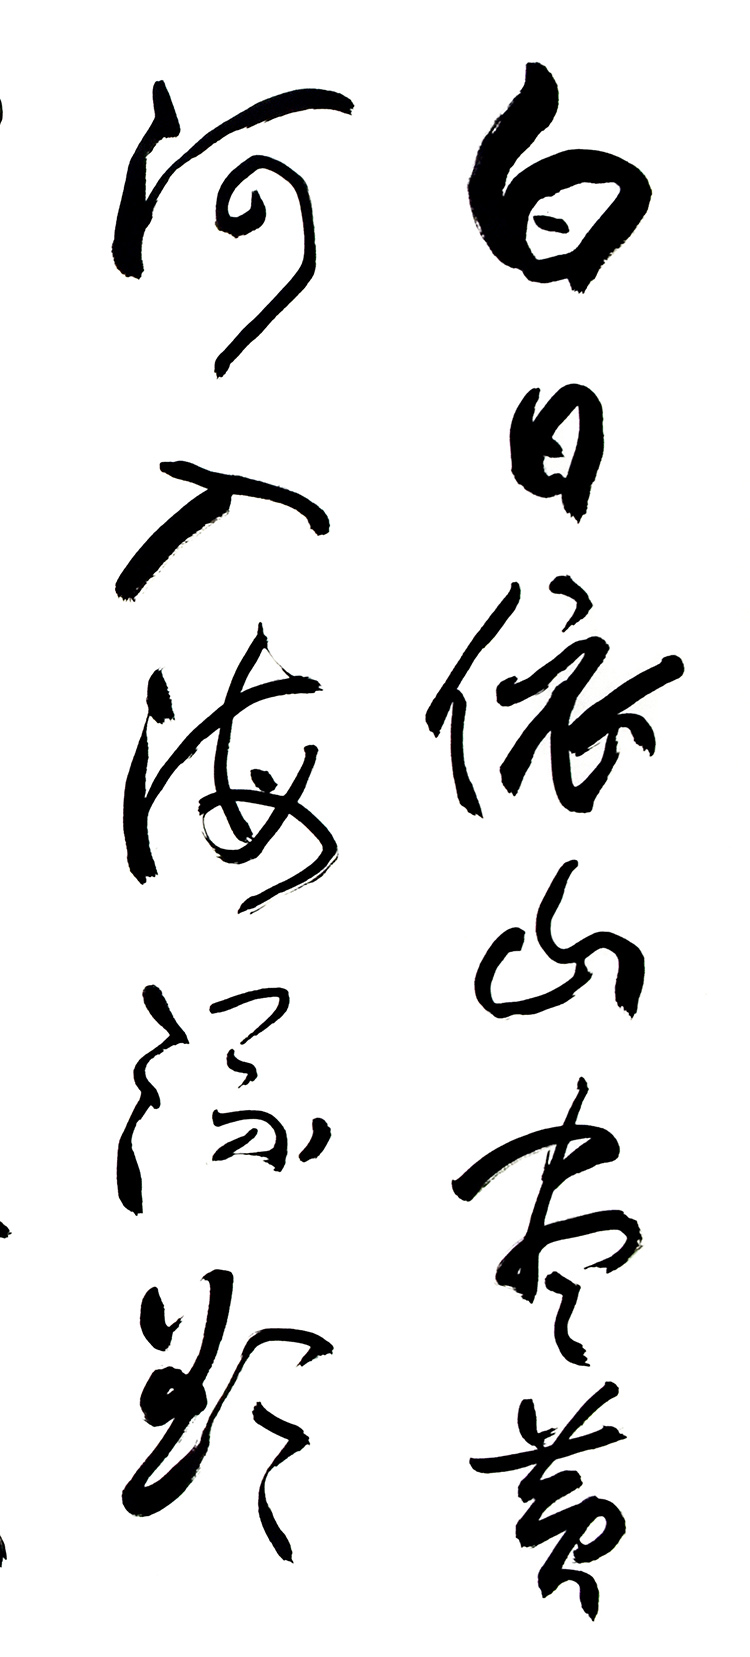 白日依山盡黄
河入海流欲